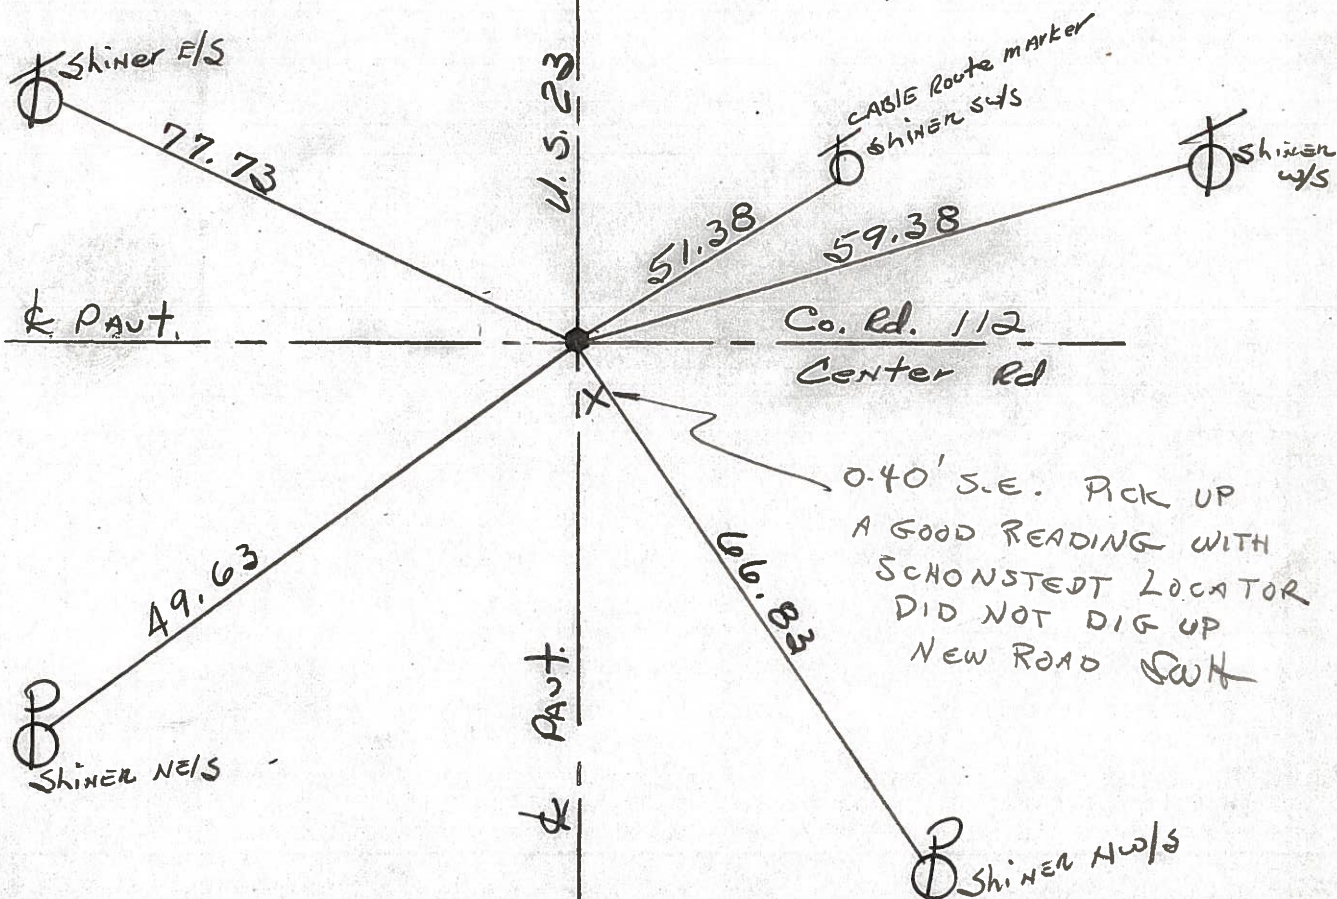 Shiner E/S
77.73
U.S. 23
CABLE Route marker
Shiner SW/S
Shiner
W/S
51.38
59.38
℄ PAvt.
Co. Rd. 112
Center Rd
X
0.40' S.E. PICK UP
A GOOD READING WITH
SCHONSTEDT LOCATOR
DID NOT DIG UP
NEW ROAD SWH
49.63
66.83
℄ PAvt.
Shiner NE/S
Shiner NW/S